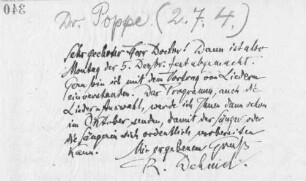 340
Dr. Poppe (2.7.4.)
Sehr geehrter Herr Doctor! Dann ist also
Montag der 5. Dezbr. fest abgemacht.
Gern bin ich mit dem Vortrag von Liedern
einverstanden. Das Programm, auch die
Lieder-Auswahl, werde ich Ihnen dann schon
im Oktober senden, damit der Sänger oder
die Sängerin sich ordentlich vorbereiten
kann. Mit ergebenem Gruß
R. Dehmel.